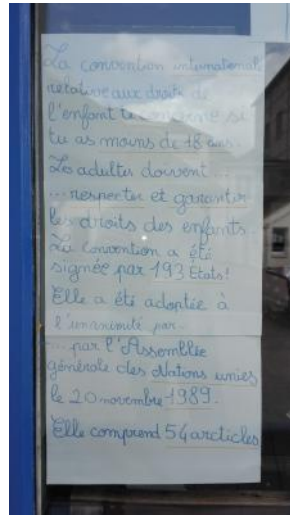 La convention internationale
relative aux droits de
l'enfant te concerne si
tu as moins de 18 ans.
Les adultes doivent
...respecter et garantir
les droits des enfants.
La Convention a été
signée par 193 États!
Elle a été adoptée à
l'unanimité par...
... par l'Assemblée
générale des Nations unies
le 20 novembre 1989.
Elle comprend 54 arcticles